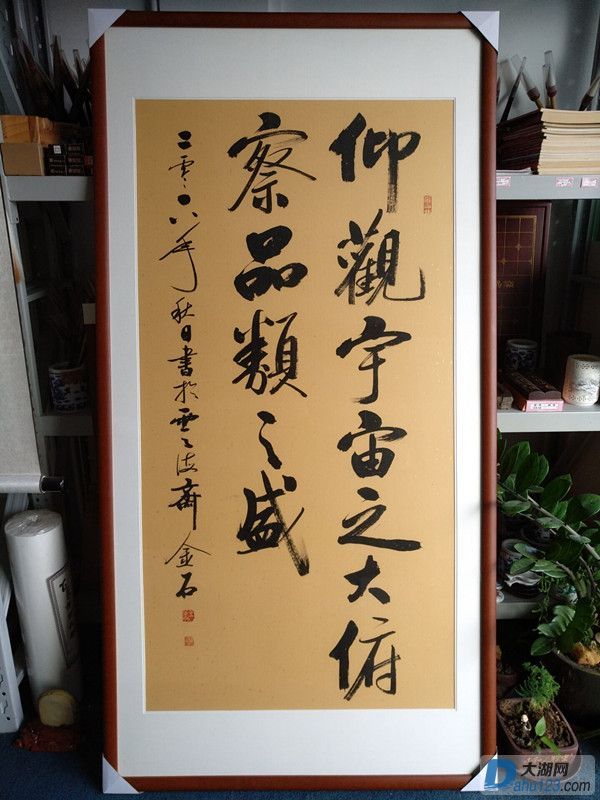 仰觀宇宙之大俯
察品類之盛
二零一八年秋日書於雲海齋金石
大湖网
Dahu123.com